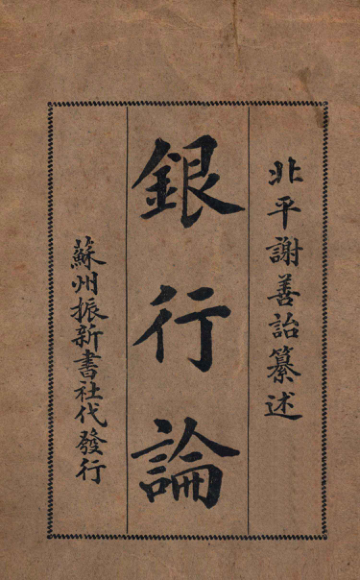 北平謝善詒纂述
銀行論
蘇州振新書社代發行